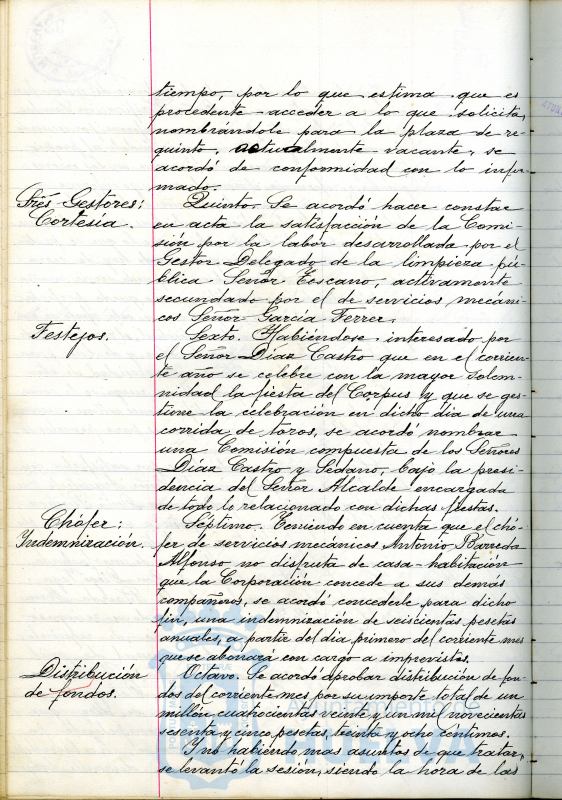 tiempo, por lo que estima que es
procedente acceder a lo que solicita,
nombrándole para la plaza de re-
quinto, actualmente vacante, se
acordó de conformidad con lo infor-
mado.
Sres. Gestores:
Cortesía.
Quinto. Se acordó hacer constar
en acta la satisfacción de la Comi-
sión por la labor desarrollada por el
Gestor Delegado de la limpieza pú-
blica Señor Tescano, activamente
secundado por el de servicios mecáni-
cos Señor García Ferrer.
Festejos.
Sexto. Habiéndose interesado por
el Señor Díaz Castro que en el corrien-
te año se celebre con la mayor solem-
nidad la fiesta del Corpus y que se ges-
tione la celebración en dicho día de una
corrida de toros, se acordó nombrar
una Comisión compuesta de los Señores
Díaz Castro y Sedano, bajo la presi-
dencia del Señor Alcalde encargada
de todo lo relacionado con dichas fiestas.
Chófer:
Indemnización.
Séptimo. Teniendo en cuenta que el chó-
fer de servicios mecánicos Antonio Barreda
Alfonso no disfruta de casa-habitación
que la Corporación concede a sus demás
compañeros, se acordó concederle para dicho
fin, una indemnización de seiscientas pesetas
anuales, a partir del día primero del corriente mes
que se abonará con cargo a imprevistos.
Distribución
de fondos.
Octavo. Se acordó aprobar distribución de fon-
dos del corriente mes por su importe total de un
millón cuatrocientas veinte y un mil novecientas
sesenta y cinco pesetas, treinta y ocho céntimos.
Y no habiendo mas asuntos de que tratar,
se levantó la sesión, siendo la hora de las
Ayuntamiento de